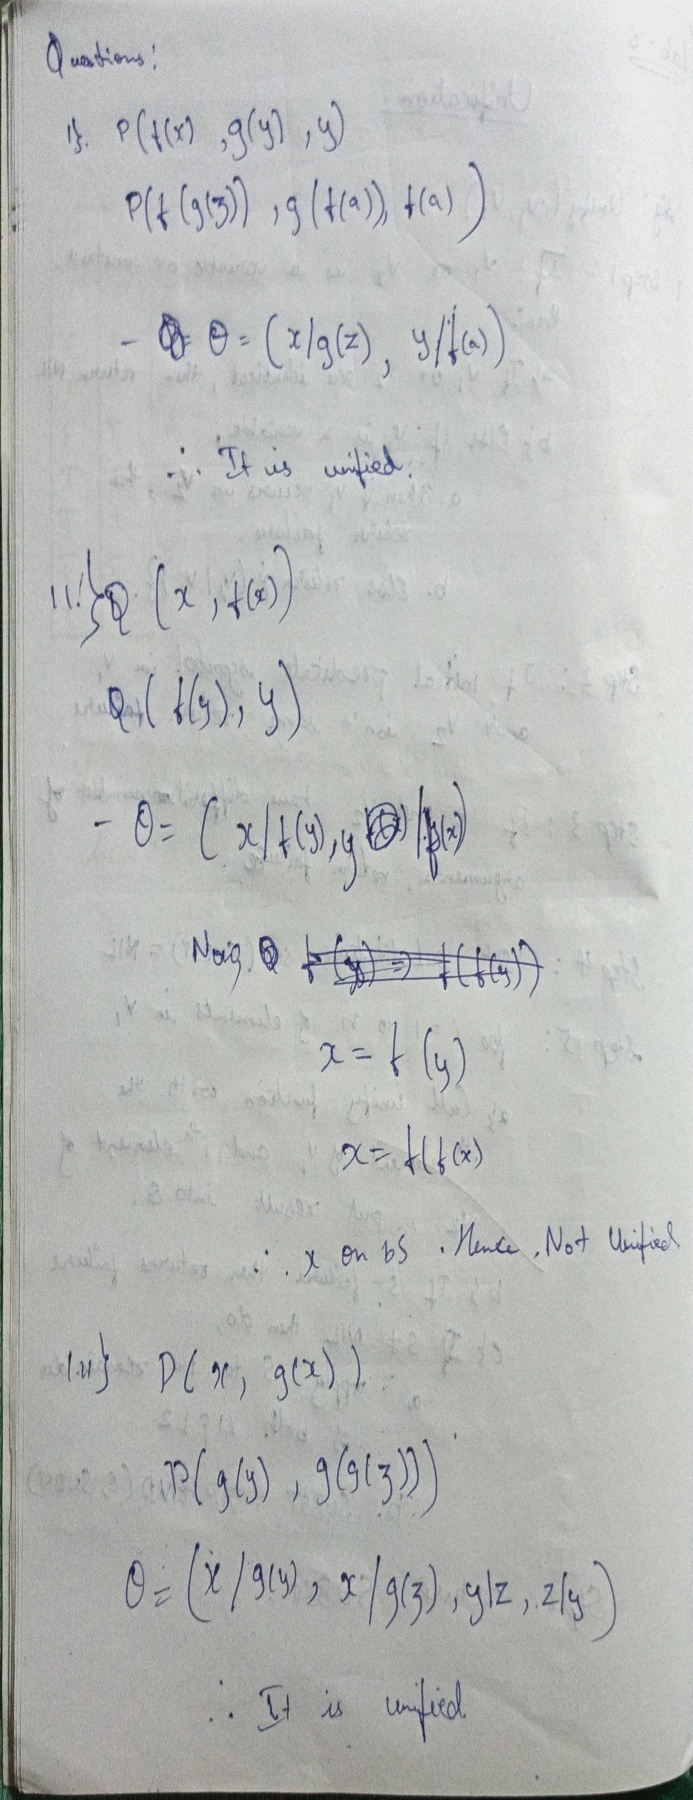 Questions:
i}. P(f(x) , g(y) , y)
P(f(g(z)) , g(f(a)), f(a))
- θ = (x/g(z), y/f(a))
∴ It is unified.
ii} Q (x , f(x))
Q( f(y) , y)
- θ = ( x/f(y), y /f(x))
x = f (y)
x = f(f(x)
∴ x on bs . Hence , Not Unified
iii} P( x , g(x) ).
P(g(y) , g(g(z)))
θ = (x/g(y) , x/g(z) , y/z , z/y )
∴ It is unified.